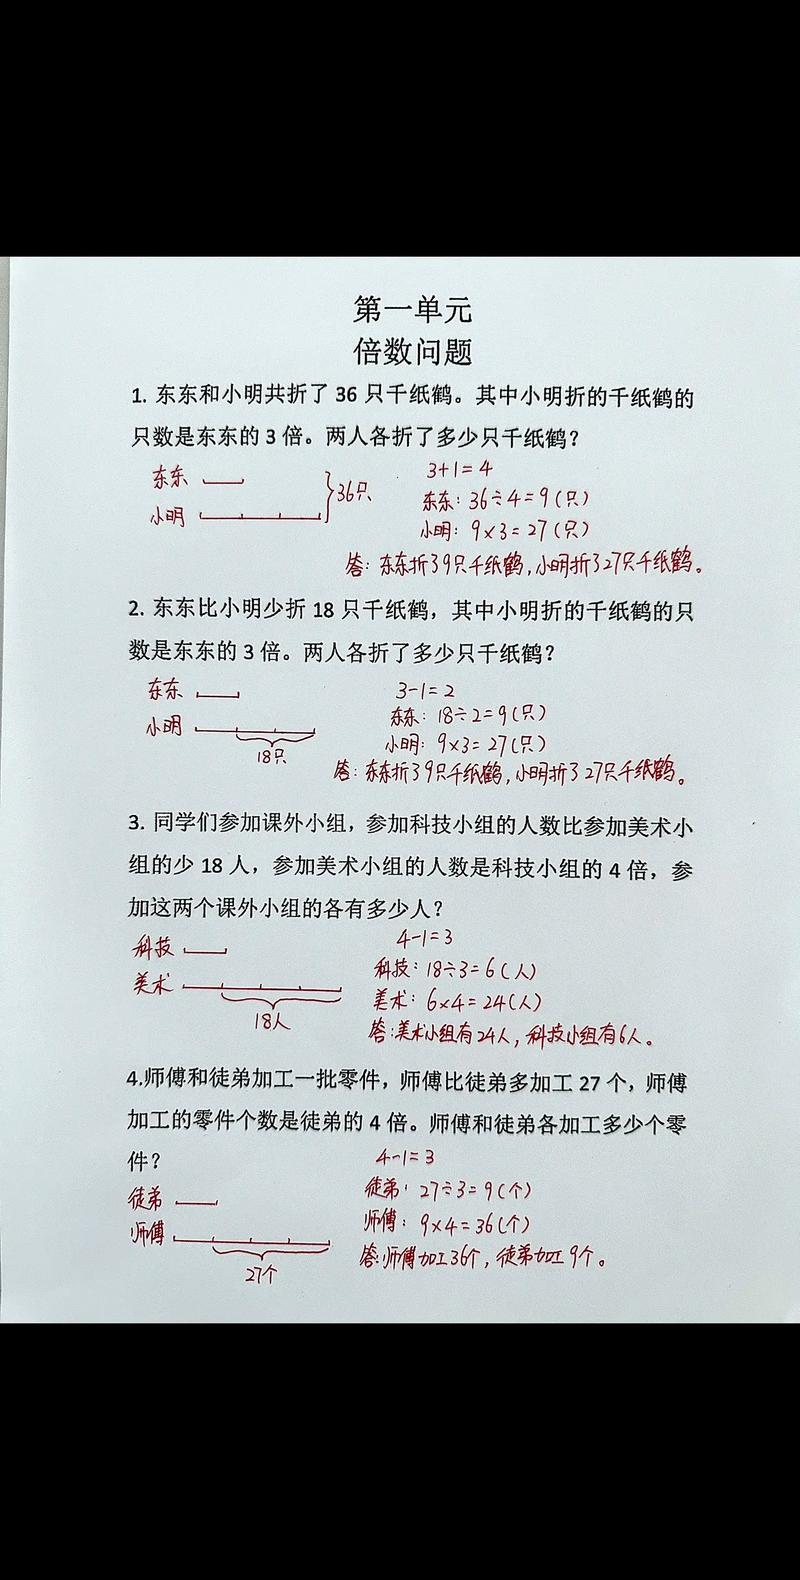 第一单元
倍数问题
1. 东东和小明共折了 36 只千纸鹤。其中小明折的千纸鹤的
只数是东东的 3 倍。两人各折了多少只千纸鹤？
3+1=4
东东 36只 东东：36÷4=9(只)
小明 小明：9×3=27(只)
答：东东折了9只千纸鹤，小明折了27只千纸鹤。
2. 东东比小明少折 18 只千纸鹤，其中小明折的千纸鹤的只
数是东东的 3 倍。两人各折了多少只千纸鹤？
东东 3-1=2
东东：18÷2=9(只)
小明 小明：9×3=27(只)
18只
答：东东折了9只千纸鹤，小明折了27只千纸鹤。
3. 同学们参加课外小组，参加科技小组的人数比参加美术小
组的少 18 人，参加美术小组的人数是科技小组的 4 倍，参
加这两个课外小组的各有多少人？
科技 4-1=3
科技：18÷3=6(人)
美术 美术：6×4=24(人)
18人
答：美术小组有24人，科技小组有6人。
4.师傅和徒弟加工一批零件，师傅比徒弟多加工 27 个，师傅
加工的零件个数是徒弟的 4 倍。师傅和徒弟各加工多少个零
件？ 4-1=3
徒弟 徒弟：27÷3=9(个)
师傅 师傅：9×4=36(个)
27个
答：师傅加工36个，徒弟加工9个。